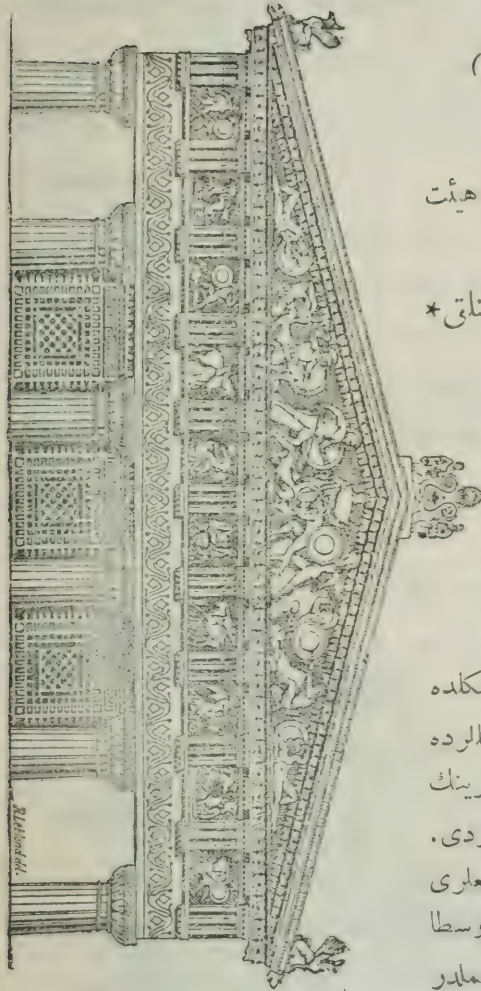 (
هيئت
تلق*
كلده
للرده
رينك
ردى.
علرى
وسطا
ملدر